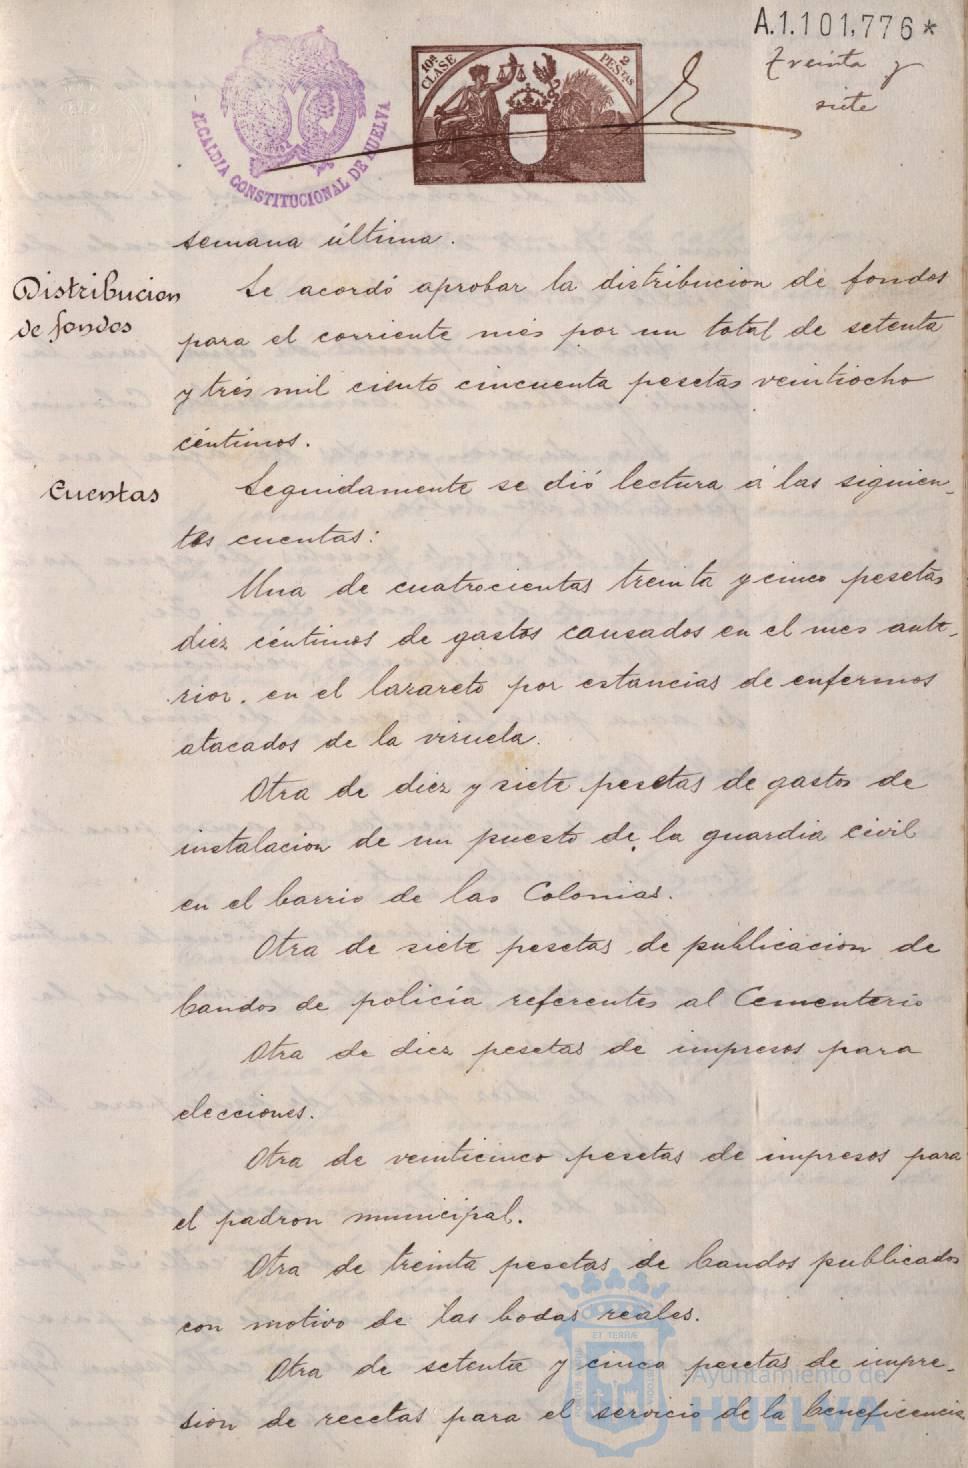 A.1.101,776*
Treinta y
siete
10ª CLASE
2 PESETAS
ALCALDIA CONSTITUCIONAL DE HUELVA
semana última.
Distribucion
de fondos
Se acordó aprobar la distribucion de fondos
para el corriente més por un total de setenta
y trés mil ciento cincuenta pesetas veintiocho
céntimos.
Cuentas
Seguidamente se dió lectura á las siguien-
tes cuentas:
Una de cuatrocientas treinta y cinco pesetas
diez céntimos de gastos causados en el mes ante-
rior. en el lazareto por estancias de enfermos
atacados de la viruela.
Otra de diez y siete pesetas de gastos de
instalacion de un puesto de la guardia civil
en el barrio de las Colonias.
Otra de siete pesetas de publicacion de
bandos de policía referentes al Cementerio
Otra de diez pesetas de impresos para
elecciones.
Otra de veinticinco pesetas de impresos para
el padron municipal.
Otra de treinta pesetas de bandos publicados
con motivo de las bodas reales.
Otra de setenta y cinco pesetas de impre-
sion de recetas para el servicio de la beneficencia
ET TERRÆ
Ayuntamiento de
HUELVA